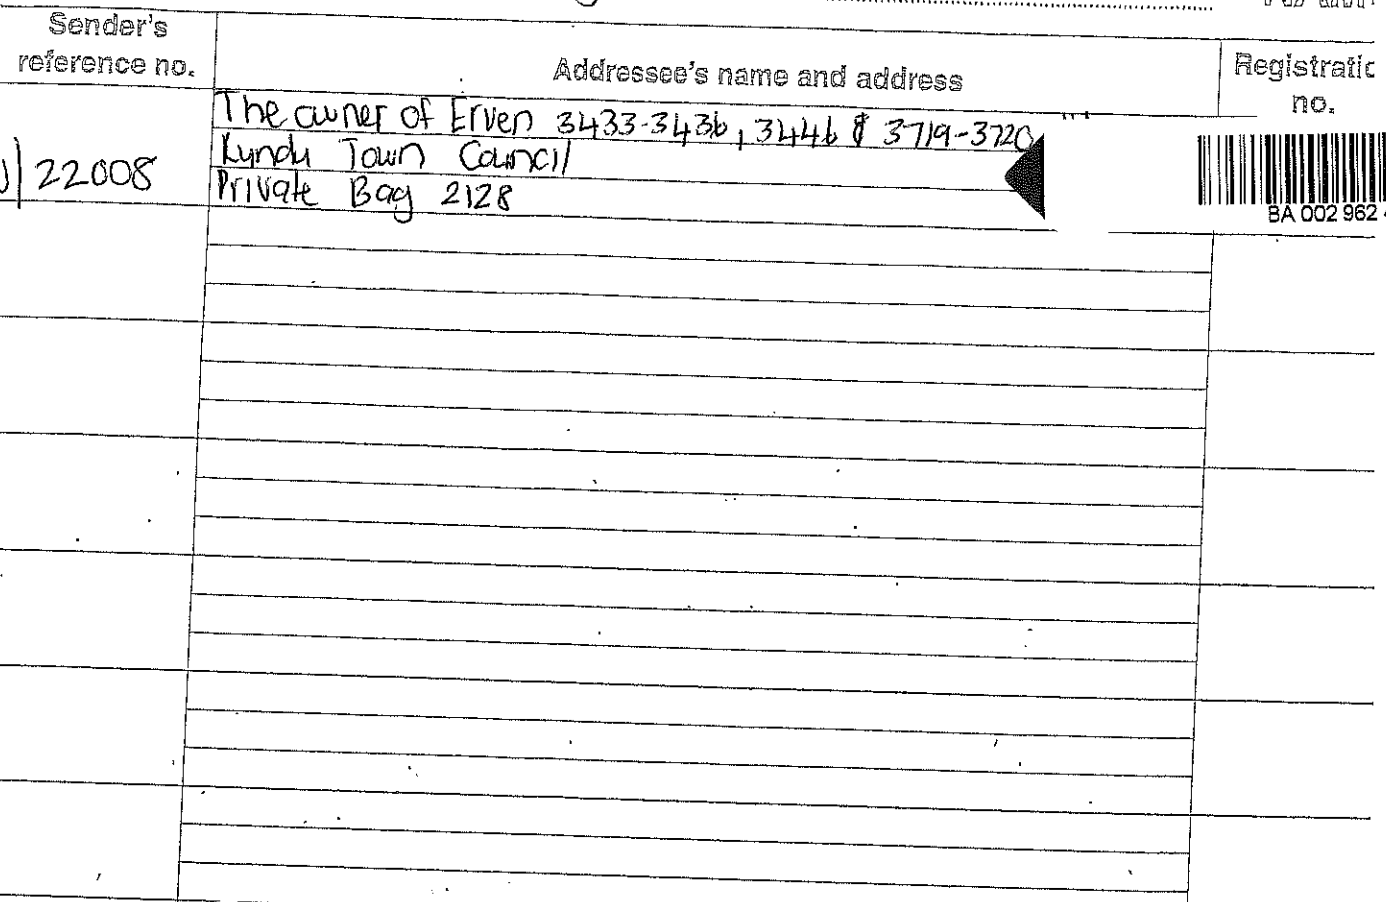 Sender's
reference no.
Addressee's name and address
Registratic
no.
The owner of Erven 3433-3436, 3446 & 3719-3720
Town Council
Private Bag 2128
22008
BA 002 962